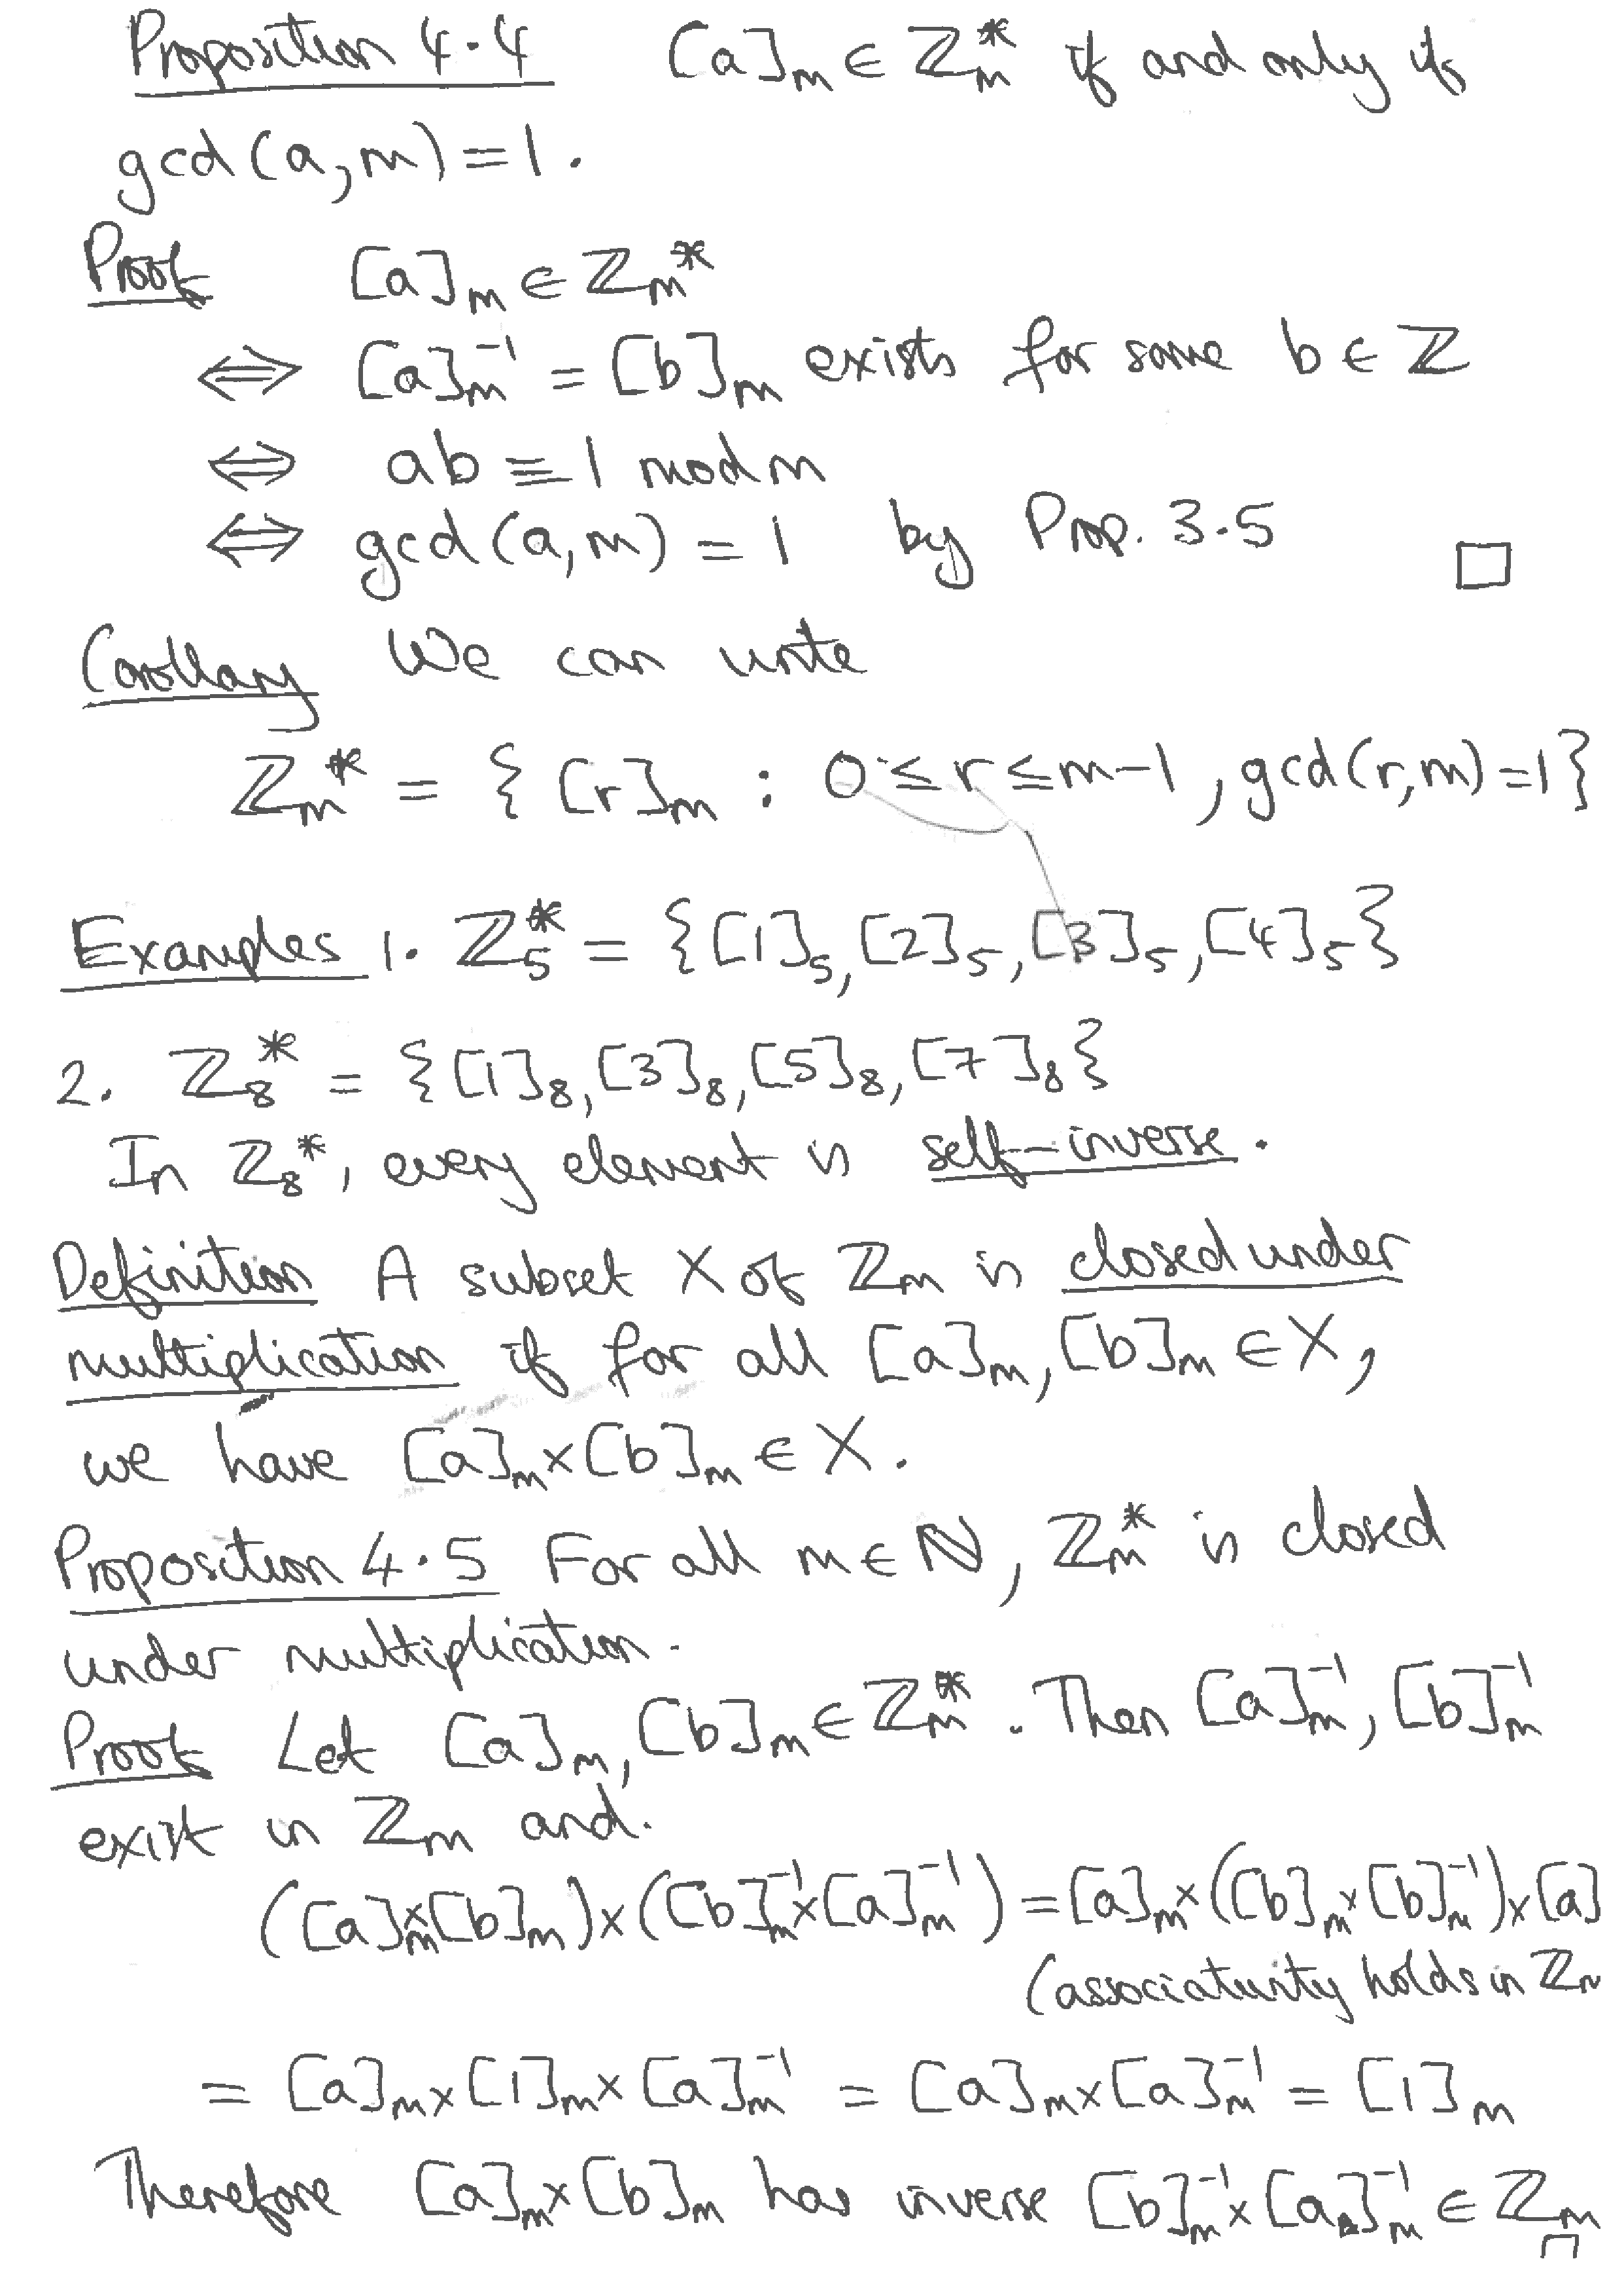 Proposition 4.4 [a]ₘ ∈ ℤₘ* if and only if
gcd(a,m)=1.
Proof [a]ₘ ∈ ℤₘ*
⟺ [a]ₘ⁻¹ = [b]ₘ exists for some b ∈ ℤ
⟺ ab ≡ 1 mod m
⟺ gcd(a,m) = 1 by Prop. 3.5 □
Corollary We can write
ℤₘ* = { [r]ₘ : 0 ≤ r ≤ m-1, gcd(r,m)=1}
Examples 1. ℤ₅* = {[1]₅, [2]₅, [3]₅, [4]₅}
2. ℤ₈* = {[1]₈, [3]₈, [5]₈, [7]₈}
In ℤ₈*, every element is self-inverse.
Definition A subset X of ℤₘ is closed under
multiplication if for all [a]ₘ, [b]ₘ ∈ X,
we have [a]ₘ × [b]ₘ ∈ X.
Proposition 4.5 For all m ∈ ℕ, ℤₘ* is closed
under multiplication.
Proof Let [a]ₘ, [b]ₘ ∈ ℤₘ*. Then [a]ₘ⁻¹, [b]ₘ⁻¹
exist in ℤₘ and.
([a]ₘ×[b]ₘ)×([b]ₘ⁻¹×[a]ₘ⁻¹) = [a]ₘ×([b]ₘ×[b]ₘ⁻¹)×[a]
(associativity holds in ℤₘ
= [a]ₘ×[1]ₘ×[a]ₘ⁻¹ = [a]ₘ×[a]ₘ⁻¹ = [1]ₘ
Therefore [a]ₘ×[b]ₘ has inverse [b]ₘ⁻¹×[a]ₘ⁻¹ ∈ ℤₘ
□